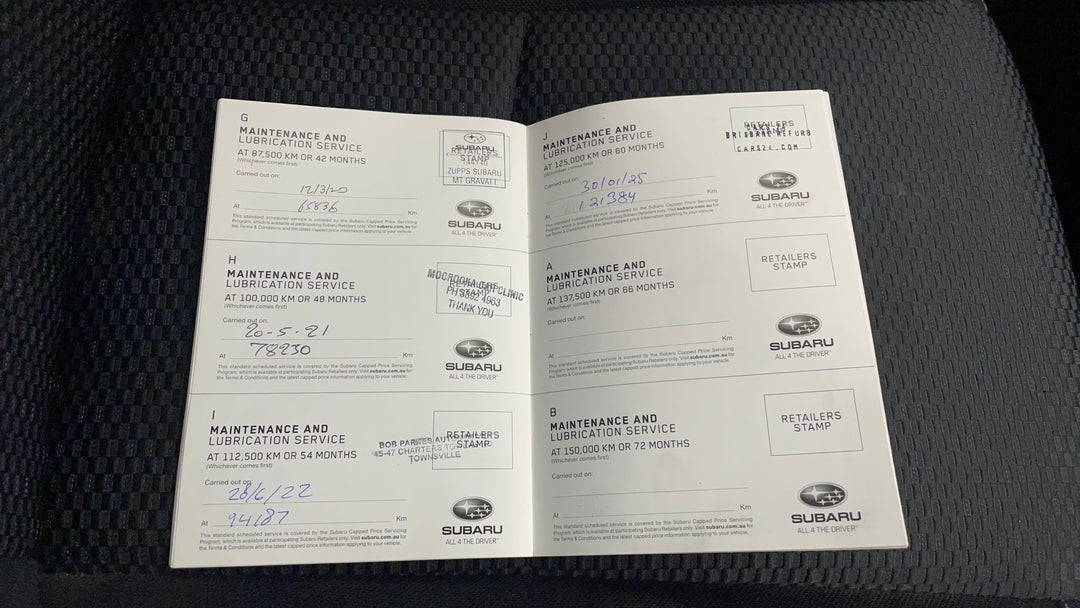 G
MAINTENANCE AND
LUBRICATION SERVICE
AT 87,500 KM OR 42 MONTHS
(Whichever comes first)
Carried out on:
12/3/20
At 65836 Km
This standard scheduled service is covered by the Subaru Capped Price Servicing
Program, which is available at participating Subaru Retailers only. Visit subaru.com.au for
the Terms & Conditions and the latest capped price information applying to your vehicle.
SUBARU
RETAILERS
STAMP
144140
ZUPPS SUBARU
MT GRAVATT
SUBARU
ALL 4 THE DRIVER
H
MAINTENANCE AND
LUBRICATION SERVICE
AT 100,000 KM OR 48 MONTHS
(Whichever comes first)
Carried out on:
20-5-21
At 78230 Km
This standard scheduled service is covered by the Subaru Capped Price Servicing
Program, which is available at participating Subaru Retailers only. Visit subaru.com.au for
the Terms & Conditions and the latest capped price information applying to your vehicle.
MOOROOKA CAR CLINIC
RETAILERS
STAMP
PH 3892 4963
THANK YOU
SUBARU
ALL 4 THE DRIVER
I
MAINTENANCE AND
LUBRICATION SERVICE
AT 112,500 KM OR 54 MONTHS
(Whichever comes first)
Carried out on:
28/6/22
At 94187 Km
This standard scheduled service is covered by the Subaru Capped Price Servicing
Program, which is available at participating Subaru Retailers only. Visit subaru.com.au for
the Terms & Conditions and the latest capped price information applying to your vehicle.
RETAILERS
STAMP
BOB PARKES
45-47 CHARTERS
TOWNSVILLE
SUBARU
ALL 4 THE DRIVER
J
MAINTENANCE AND
LUBRICATION SERVICE
AT 125,000 KM OR 60 MONTHS
(Whichever comes first)
Carried out on:
30/01/25
At 121384 Km
This standard scheduled service is covered by the Subaru Capped Price Servicing
Program, which is available at participating Subaru Retailers only. Visit subaru.com.au for
the Terms & Conditions and the latest capped price information applying to your vehicle.
RETAILERS
STAMP
CARS24
BRISBANE REFURB
CARS24.COM
SUBARU
ALL 4 THE DRIVER
A
MAINTENANCE AND
LUBRICATION SERVICE
AT 137,500 KM OR 66 MONTHS
(Whichever comes first)
Carried out on:
At Km
This standard scheduled service is covered by the Subaru Capped Price Servicing
Program, which is available at participating Subaru Retailers only. Visit subaru.com.au for
the Terms & Conditions and the latest capped price information applying to your vehicle.
RETAILERS
STAMP
SUBARU
ALL 4 THE DRIVER
B
MAINTENANCE AND
LUBRICATION SERVICE
AT 150,000 KM OR 72 MONTHS
(Whichever comes first)
Carried out on:
At Km
This standard scheduled service is covered by the Subaru Capped Price Servicing
Program, which is available at participating Subaru Retailers only. Visit subaru.com.au for
the Terms & Conditions and the latest capped price information applying to your vehicle.
RETAILERS
STAMP
SUBARU
ALL 4 THE DRIVER